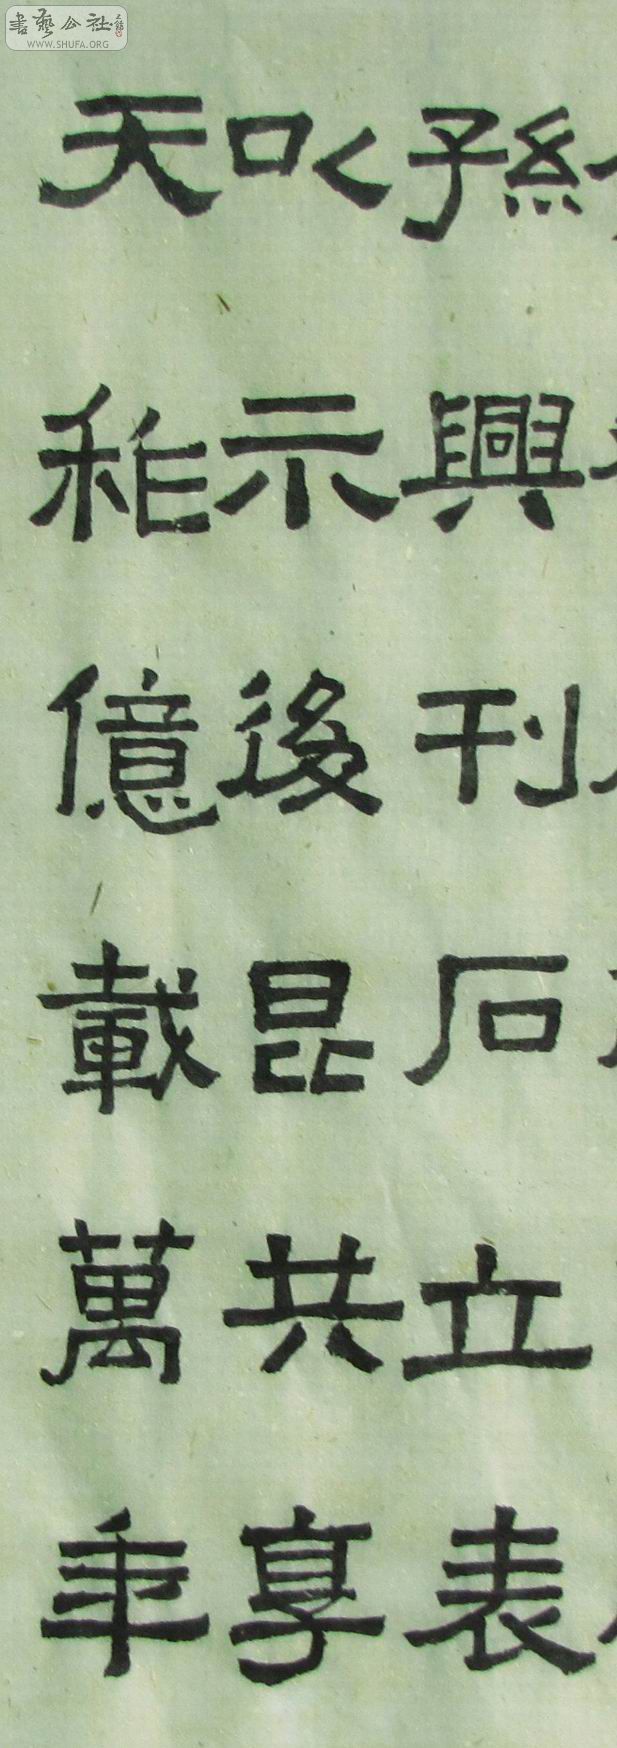 書藝公社
WWW.SHUFA.ORG
孫興刊石立表
以示後昆共享
天祚億載萬年